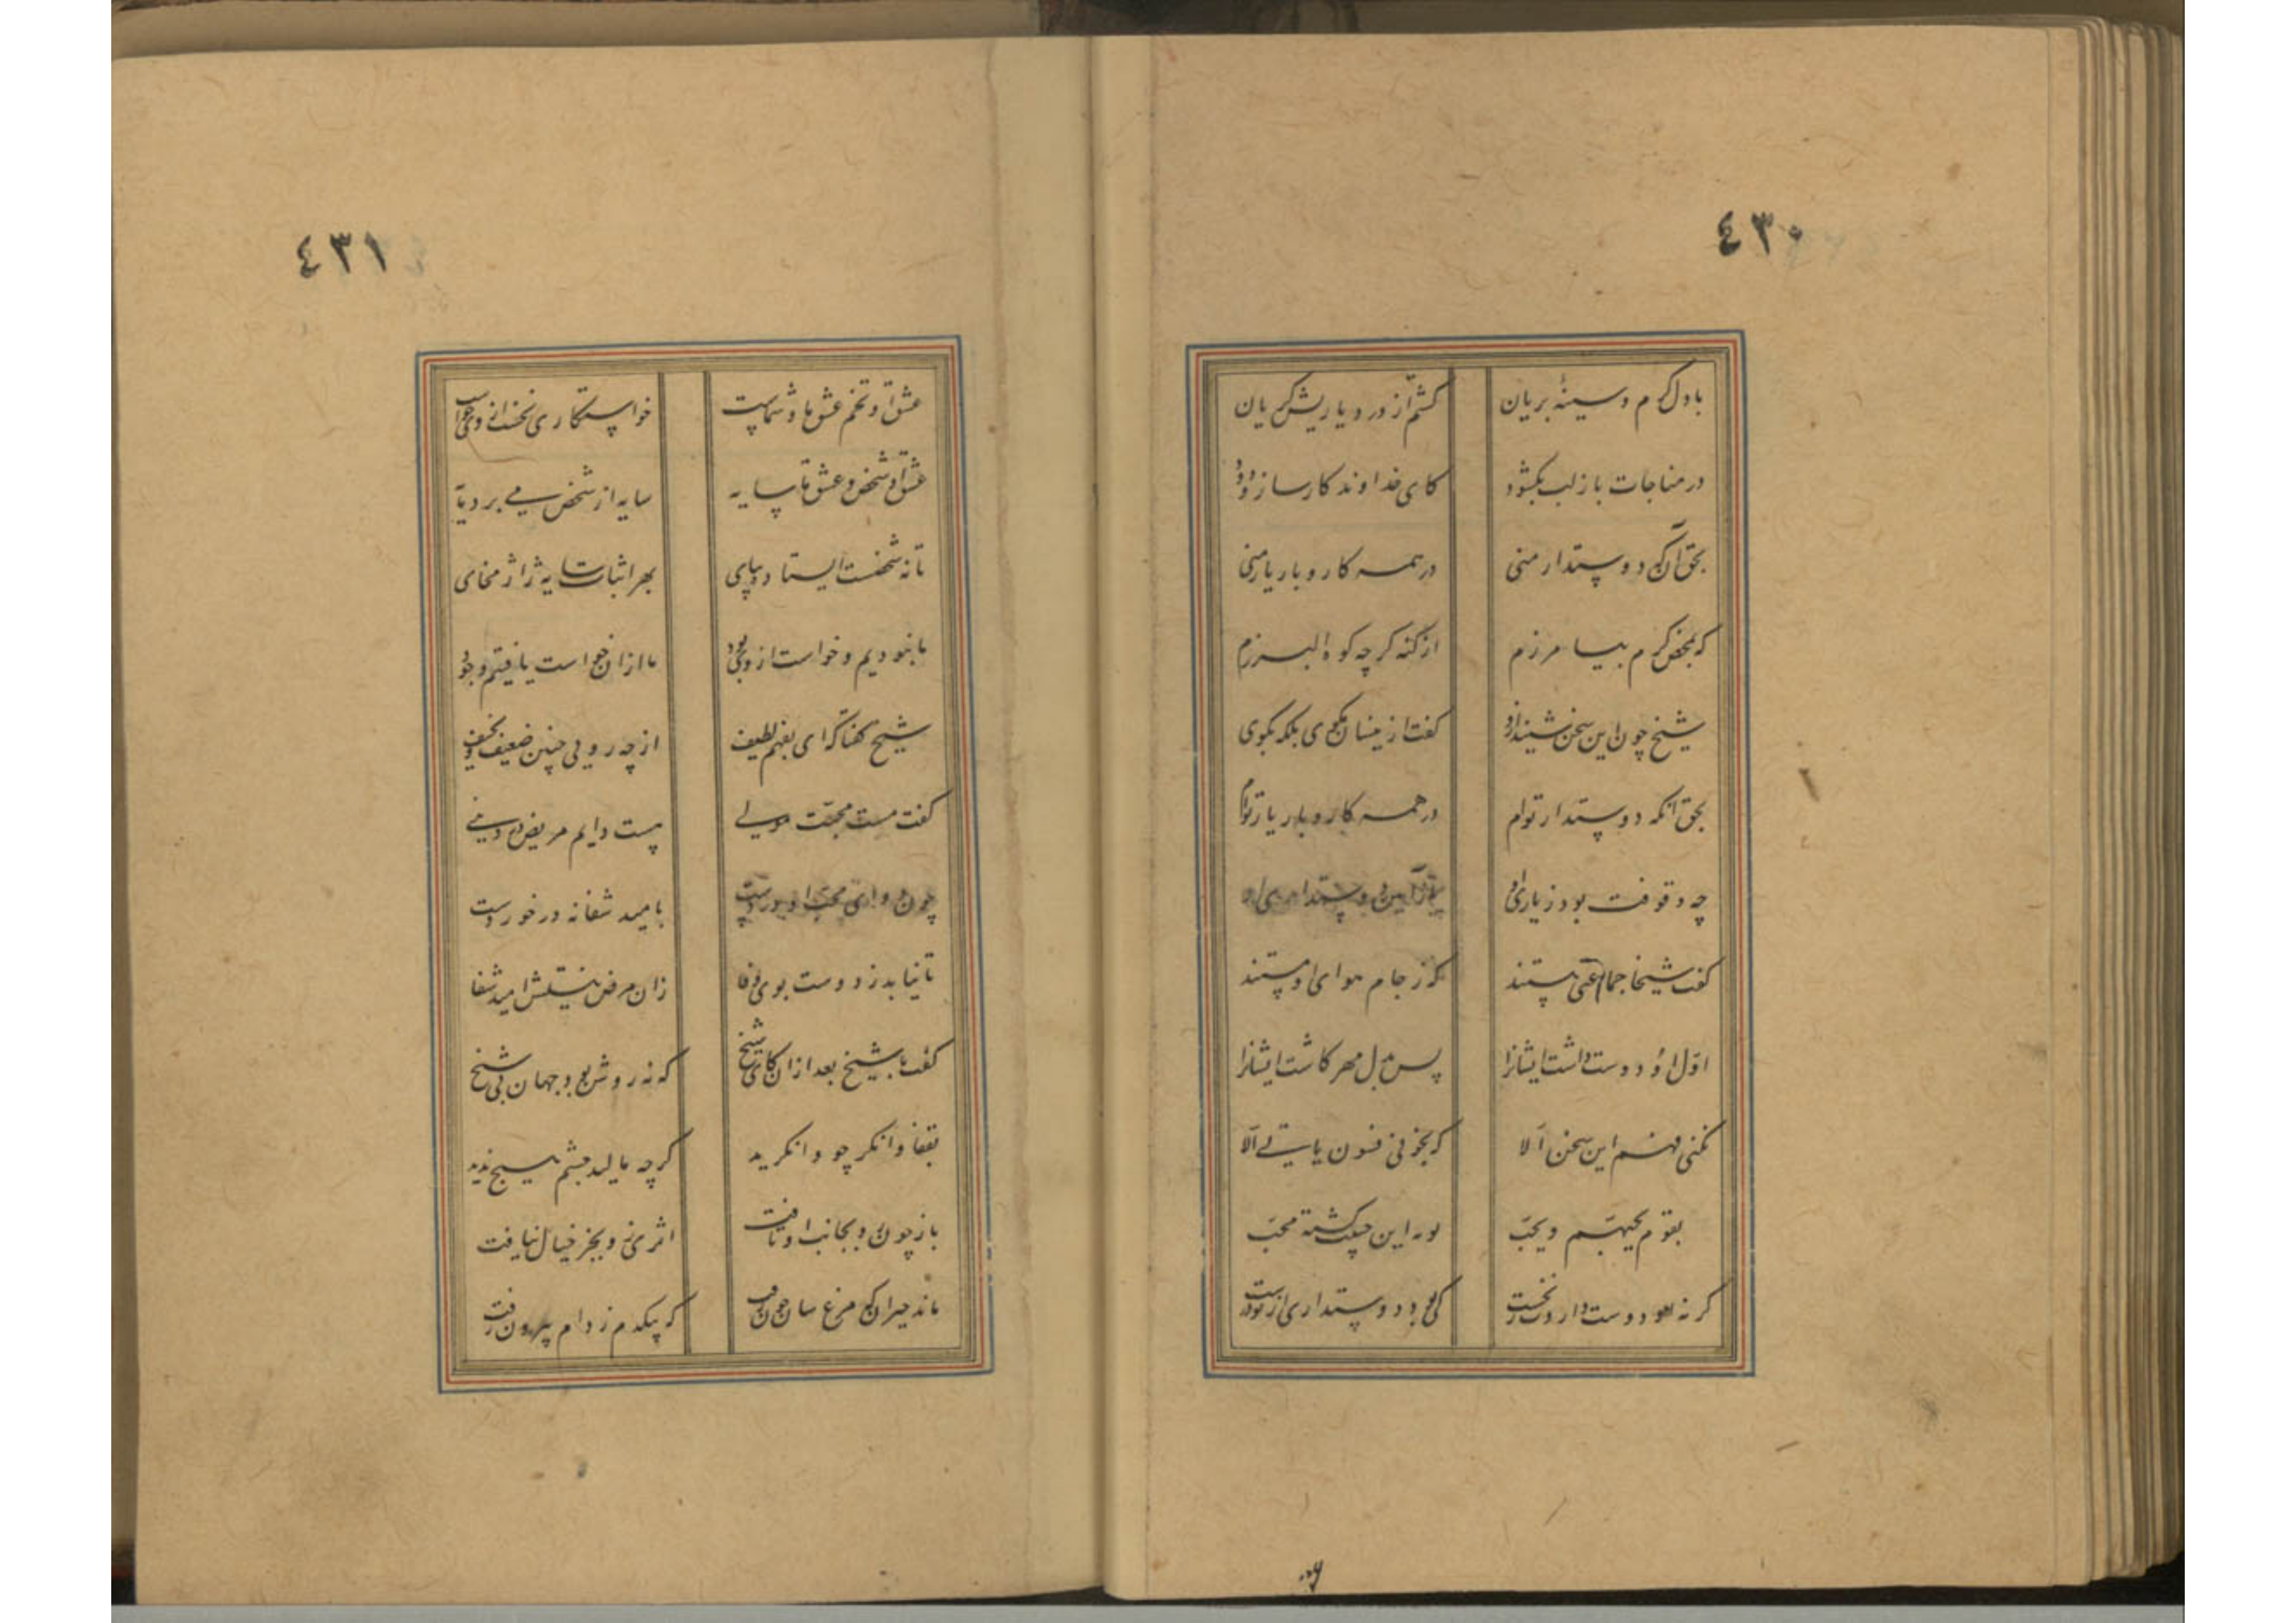 ٤٣٠
با دل گرم و سینهٔ بریان کشم از درد یا ریش کریان
در مناجات باز لب بکشود کای خداوند کارساز ودود
بحق آن که دوستدار منی در همه کار و بار یار منی
که بمحض کرم بیامرزم از کنه کرچه کوه البرزم
شیخ چون این سخن شنید ازو کفت ازینسان مکوی بلکه بکوی
بحق آنکه دوستدار توام در همه کار و بار یار توام
چه وقوفت بود ز یاری او
کفت شیخا جماعتی هستند که ز جام هوای او مستند
اوّل او دوست داشت ایشانرا پس بدل مهر کاشت ایشانرا
نکنی فهم این سخن الا که بخوانی فسوف یأتی الا
بقوم یحبهم ویحب
کر نه او دوست داردت ز نخست کی بود دوستداری از تو درست
٤٣١
عشق او تخم عشق ما و شماست خواستکاری نخست ازوی خواست
عشق او شخص و عشق ما سایه سایه از شخص می برد مایه
تا نه شخصست ایستاده بپای بهر اثبات سایه ژاژ مخای
ما نبودیم و خواست از وی بود ما ازان خواست یافتیم وجود
شیخ کفتا که ای بفهم لطیف از چه رویی چنین ضعیف و نحیف
کفت مست محبّت مولی هست دایم مریض در دنیی
بامید شفا نه در خور دست
تا نیابد ز دوست بوی وفا زان مرض نیستش امید شفا
کفت با شیخ بعد ازان کای شیخ که نه روشن بود جهان بی شیخ
بقفا وانکر چو وانکرید کرچه مالید چشم هیچ ندید
باز چون رو بجانب او تافت اثری زو بجز خیال نیافت
ماند حیران که مرغ سان چون رفت که بیکدم ز دام بیرون رفت